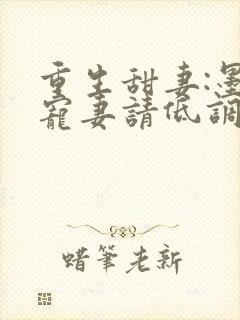 重生甜妻:墨
寵妻請低調
蜡筆老新